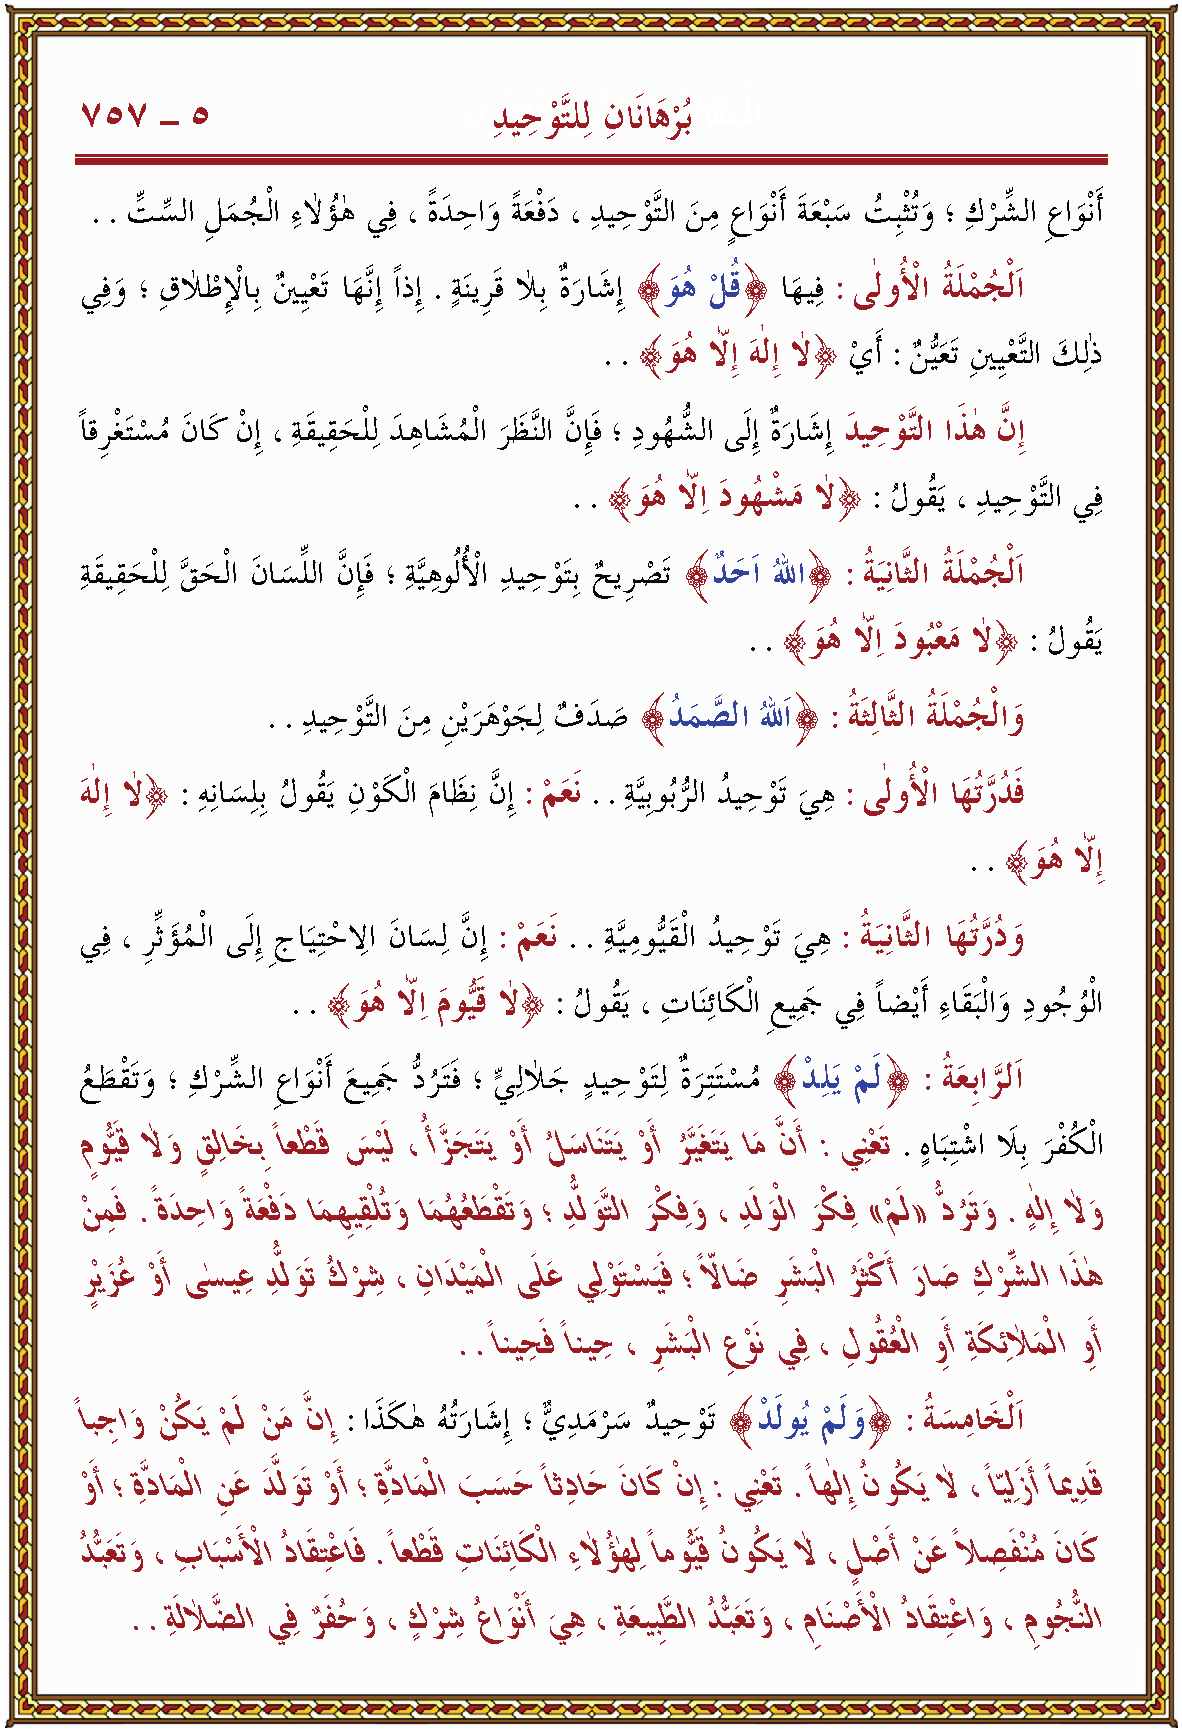 بُرْهَانَانِ لِلتَّوْحِيدِ
٥ ــ ٧٥٧
أَنْوَاعِ الشِّرْكِ ؛ وَتُثْبِتُ سَبْعَةَ أَنْوَاعٍ مِنَ التَّوْحِيدِ ، دَفْعَةً وَاحِدَةً ، فِي هٰؤُلاٰءِ الْجُمَلِ السِّتِّ . .
اَلْجُمْلَةُ الْأُولٰى : فِيهَا ﴿قُلْ هُوَ﴾ إِشَارَةٌ بِلاٰ قَرِينَةٍ . إِذاً إِنَّهَا تَعْيِينٌ بِالْإِطْلاٰقِ ؛ وَفِي
ذٰلِكَ التَّعْيِينِ تَعَيُّنٌ : أَيْ ﴿لاٰ إِلٰهَ إِلّاٰ هُوَ﴾ . .
إِنَّ هٰذَا التَّوْحِيدَ إِشَارَةٌ إِلَى الشُّهُودِ ؛ فَإِنَّ النَّظَرَ الْمُشَاهِدَ لِلْحَقِيقَةِ ، إِنْ كَانَ مُسْتَغْرِقاً
فِي التَّوْحِيدِ ، يَقُولُ : ﴿لاٰ مَشْهُودَ اِلّاٰ هُوَ﴾ . .
اَلْجُمْلَةُ الثَّانِيَةُ : ﴿اللهُ اَحَدٌ﴾ تَصْرِيحٌ بِتَوْحِيدِ الْأُلُوهِيَّةِ ؛ فَإِنَّ اللِّسَانَ الْحَقَّ لِلْحَقِيقَةِ
يَقُولُ : ﴿لاٰ مَعْبُودَ اِلّاٰ هُوَ﴾ . .
وَالْجُمْلَةُ الثَّالِثَةُ : ﴿اَللهُ الصَّمَدُ﴾ صَدَفٌ لِجَوْهَرَيْنِ مِنَ التَّوْحِيدِ . .
فَدُرَّتُهَا الْأُولٰى : هِيَ تَوْحِيدُ الرُّبُوبِيَّةِ . . نَعَمْ : إِنَّ نِظَامَ الْكَوْنِ يَقُولُ بِلِسَانِهِ : ﴿لاٰ إِلٰهَ
إِلّاٰ هُوَ﴾ . .
وَدُرَّتُهَا الثَّانِيَةُ : هِيَ تَوْحِيدُ الْقَيُّومِيَّةِ . . نَعَمْ : إِنَّ لِسَانَ الِاحْتِيَاجِ إِلَى الْمُؤَثِّرِ ، فِي
الْوُجُودِ وَالْبَقَاءِ أَيْضاً فِي جَمِيعِ الْكَائِنَاتِ ، يَقُولُ : ﴿لاٰ قَيُّومَ اِلّاٰ هُوَ﴾ . .
اَلرَّابِعَةُ : ﴿لَمْ يَلِدْ﴾ مُسْتَتِرَةٌ لِتَوْحِيدٍ جَلاٰلِيٍّ ؛ فَتَرُدُّ جَمِيعَ أَنْوَاعِ الشِّرْكِ ؛ وَتَقْطَعُ
الْكُفْرَ بِلَا اشْتِبَاهٍ . تَعْنِي : أَنَّ مَا يَتَغَيَّرُ أَوْ يَتَنَاسَلُ أَوْ يَتَجَزَّأُ ، لَيْسَ قَطْعاً بِخَالِقٍ وَلاٰ قَيُّومٍ
وَلاٰ إِلٰهٍ . وَتَرُدُّ «لَمْ» فِكْرَ الْوَلَدِ ، وَفِكْرَ التَّوَلُّدِ ؛ وَتَقْطَعُهُمَا وَتُلْقِيهِمَا دَفْعَةً وَاحِدَةً . فَمِنْ
هٰذَا الشِّرْكِ صَارَ أَكْثَرُ الْبَشَرِ ضَالّاً ؛ فَيَسْتَوْلِي عَلَى الْمَيْدَانِ ، شِرْكُ تَوَلُّدِ عِيسٰى أَوْ عُزَيْرٍ
أَوِ الْمَلاٰئِكَةِ أَوِ الْعُقُولِ ، فِي نَوْعِ الْبَشَرِ ، حِيناً فَحِيناً . .
اَلْخَامِسَةُ : ﴿وَلَمْ يُولَدْ﴾ تَوْحِيدٌ سَرْمَدِيٌّ ؛ إِشَارَتُهُ هٰكَذَا : إِنَّ مَنْ لَمْ يَكُنْ وَاجِباً
قَدِيماً أَزَلِيّاً ، لاٰ يَكُونُ إِلٰهاً . تَعْنِي : إِنْ كَانَ حَادِثاً حَسَبَ الْمَادَّةِ ؛ أَوْ تَوَلَّدَ عَنِ الْمَادَّةِ ؛ أَوْ
كَانَ مُنْفَصِلاً عَنْ أَصْلٍ ، لاٰ يَكُونُ قَيُّوماً لِهٰؤُلاٰءِ الْكَائِنَاتِ قَطْعاً . فَاعْتِقَادُ الْأَسْبَابِ ، وَتَعَبُّدُ
النُّجُومِ ، وَاعْتِقَادُ الْأَصْنَامِ ، وَتَعَبُّدُ الطَّبِيعَةِ ، هِيَ أَنْوَاعُ شِرْكٍ ، وَحُفَرٌ فِي الضَّلاٰلَةِ . .